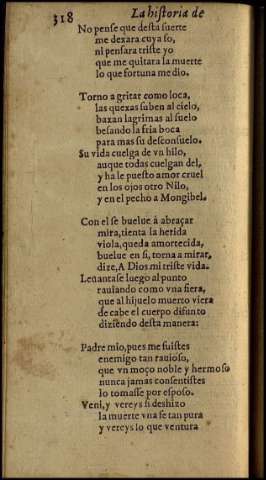 318 La historia de
No pense que desta suerte
me dexara cuya so,
ni pensara triste yo
que me quitara la muerte
lo que fortuna me dio.
Torno a gritar como loca,
las quexas suben al cielo,
baxan lagrimas al suelo
besando la fria boca
para mas su desconsuelo.
Su vida cuelga de vn hilo,
auque todas cuelgan del,
y ha le puesto amor cruel
en los ojos otro Nilo,
y en el pecho a Mongibel.
Con el se buelue à abraçar
mira, tienta la herida
viola, queda amortecida,
buelue en si, torna a mirar,
dize, A Dios mi triste vida.
Leuantase luego al punto
rauiando como vna fiera,
que al hijuelo muerto viera
de cabe el cuerpo difunto
diziendo desta manera:
Padre mio, pues me fuistes
enemigo tan rauioso,
que vn moço noble y hermoso
nunca jamas consentistes
lo tomasse por esposo.
Veni, y vereys si deshizo
la muerte vna fe tan pura
y vereys lo que ventura